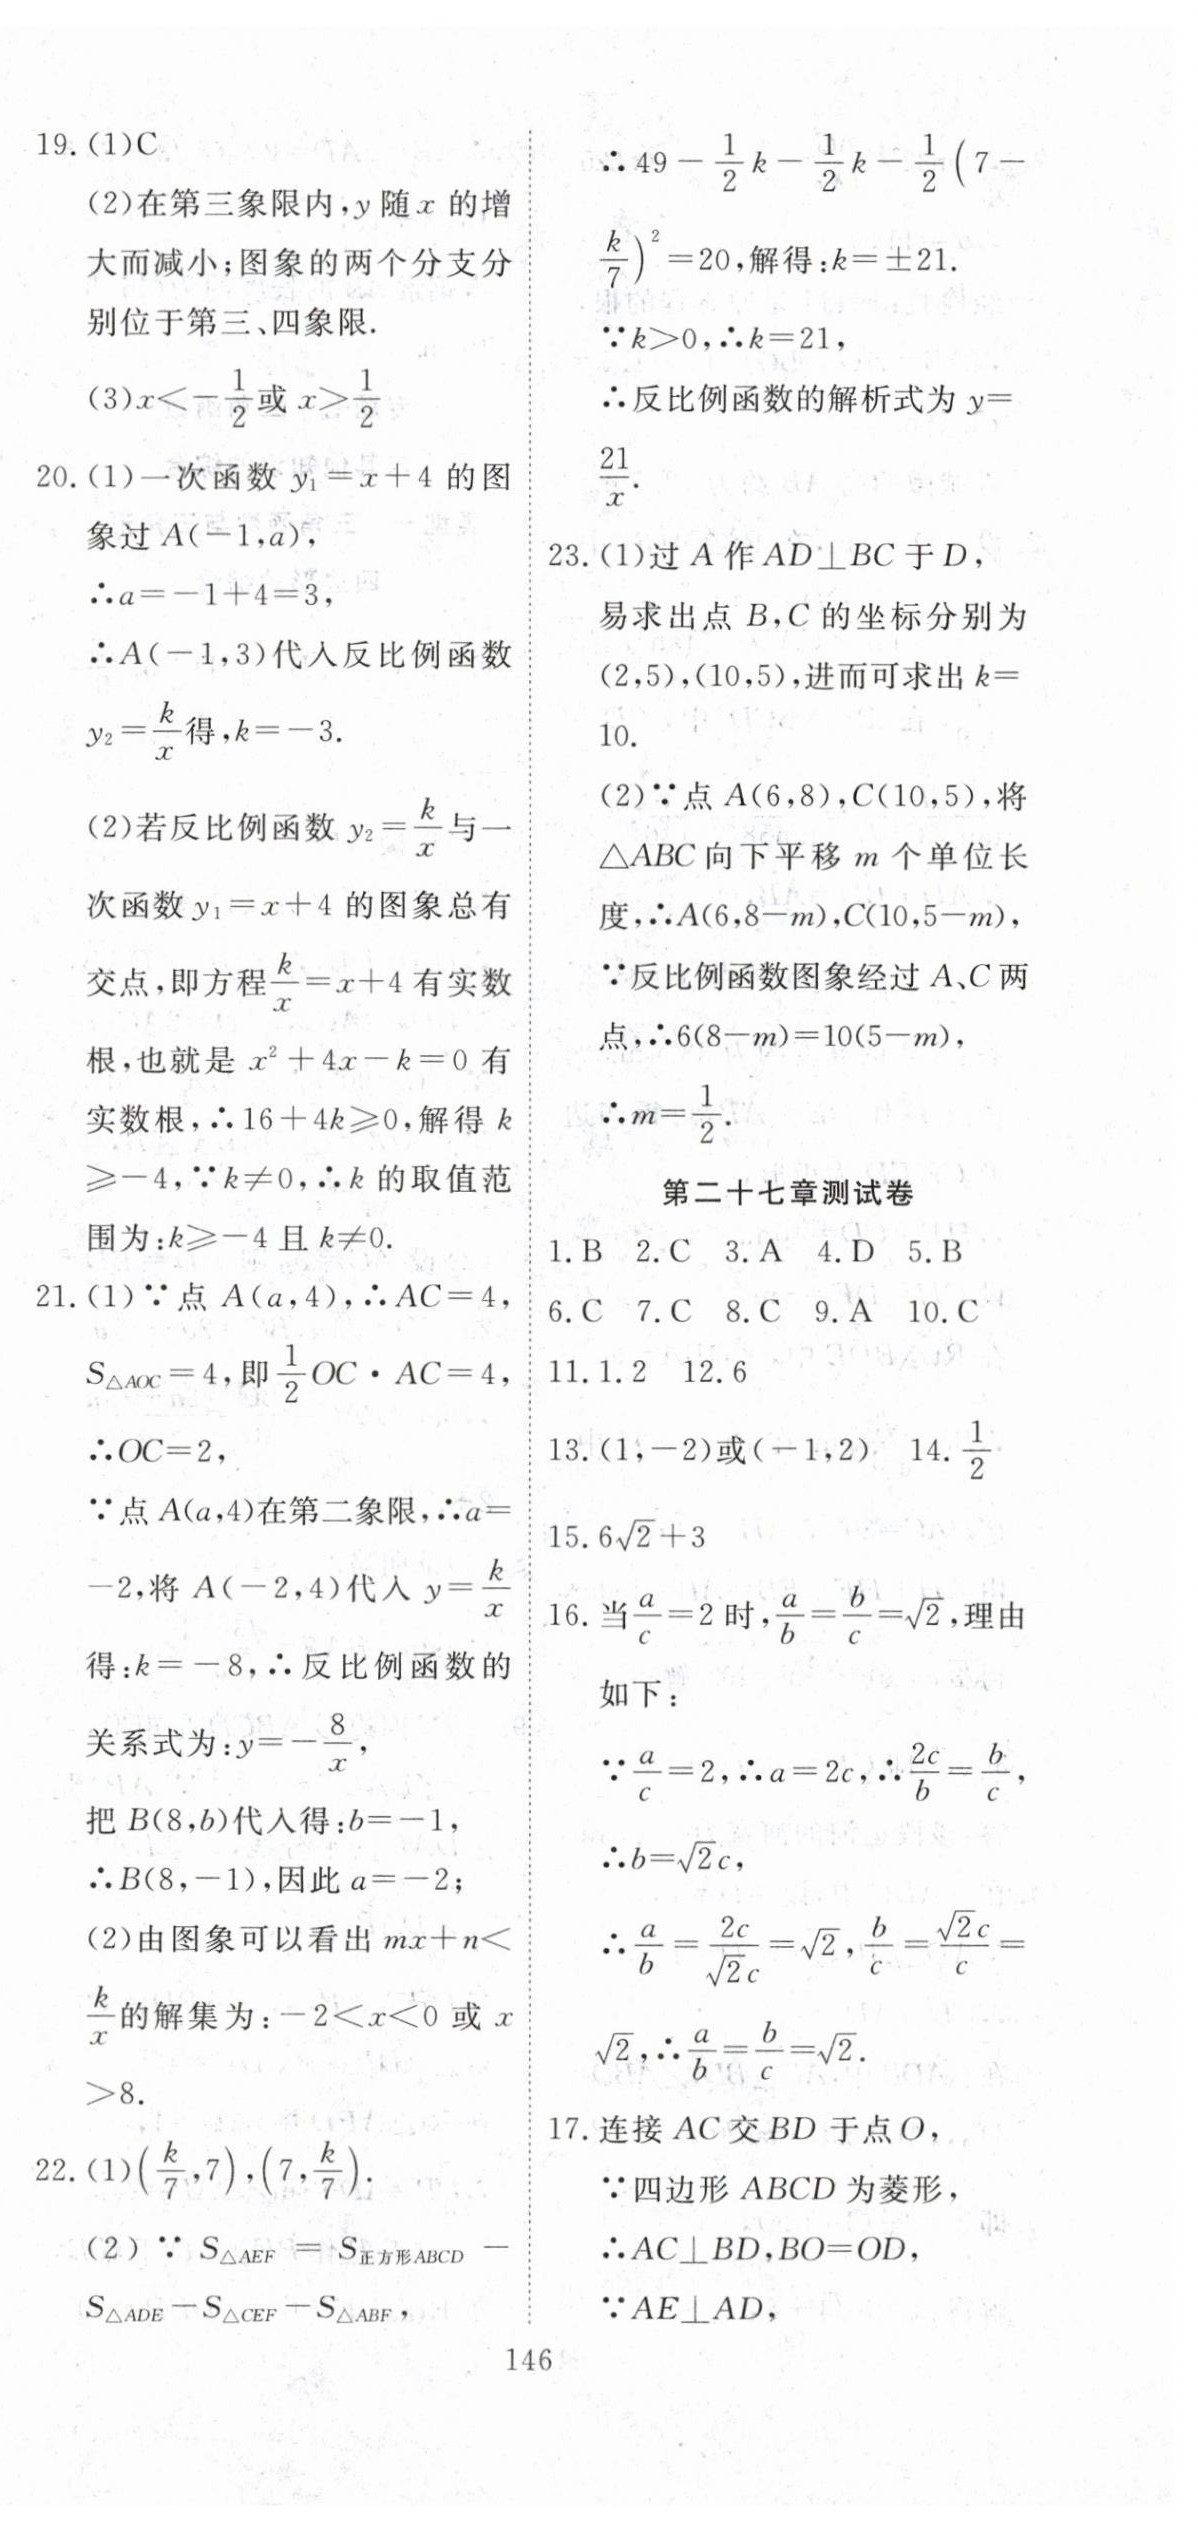 19. (1)C
(2)在第三象限内,y随x的增
大而减小;图象的两个分支分
别位于第三、四象限.
(3)x<-1/2或x>1/2
20. (1)一次函数 y₁=x+4 的图
象过 A(-1,a),
∴a=-1+4=3,
∴A(-1,3)代入反比例函数
y₂=k/x得,k=-3.
(2)若反比例函数 y₂=k/x与一
次函数 y₁=x+4 的图象总有
交点,即方程k/x=x+4 有实数
根,也就是 x²+4x-k=0 有
实数根,∴16+4k≥0,解得 k
≥-4,∵k≠0,∴k 的取值范
围为:k≥-4 且 k≠0.
21. (1)∵点 A(a,4),∴AC=4,
S△AOC=4,即1/2OC·AC=4,
∴OC=2,
∵点 A(a,4)在第二象限,∴a=
-2,将 A(-2,4)代入 y=k/x
得:k=-8,∴反比例函数的
关系式为:y=-8/x,
把 B(8,b)代入得:b=-1,
∴B(8,-1),因此 a=-2;
(2)由图象可以看出 mx+n<
k/x的解集为:-2<x<0 或 x
>8.
22. (1)(k/7,7),(7,k/7).
(2)∵S△AEF=S正方形ABCD-
S△ADE-S△CEF-S△ABF,
∴49-1/2k-1/2k-1/2(7-
k/7)²=20,解得:k=±21.
∵k>0,∴k=21,
∴反比例函数的解析式为 y=
21/x.
23. (1)过 A 作 AD⊥BC 于 D,
易求出点 B,C 的坐标分别为
(2,5),(10,5),进而可求出 k=
10.
(2)∵点 A(6,8),C(10,5),将
△ABC 向下平移 m 个单位长
度,∴A(6,8-m),C(10,5-m),
∵反比例函数图象经过 A、C 两
点,∴6(8-m)=10(5-m),
∴m=1/2.
第二十七章测试卷
1. B 2. C 3. A 4. D 5. B
6. C 7. C 8. C 9. A 10. C
11. 1.2 12. 6
13. (1,-2)或(-1,2) 14. 1/2
15. 6√2+3
16. 当a/c=2 时,a/b=b/c=√2,理由
如下:
∵a/c=2,∴a=2c,∴2c/b=b/c,
∴b=√2c,
∴a/b=2c/√2c=√2,b/c=√2c/c=
√2,∴a/b=b/c=√2.
17. 连接 AC 交 BD 于点 O,
∵四边形 ABCD 为菱形,
∴AC⊥BD,BO=OD,
∵AE⊥AD,
146